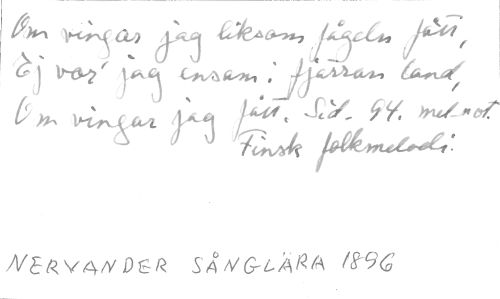 Om vingar jag liksom fågeln fått,
Ej vor' jag ensam i fjärran land,
Om vingar jag fått. Sid. 94. mel. not.
Finsk folkmelodi.
NERVANDER SÅNGLÄRA 1896